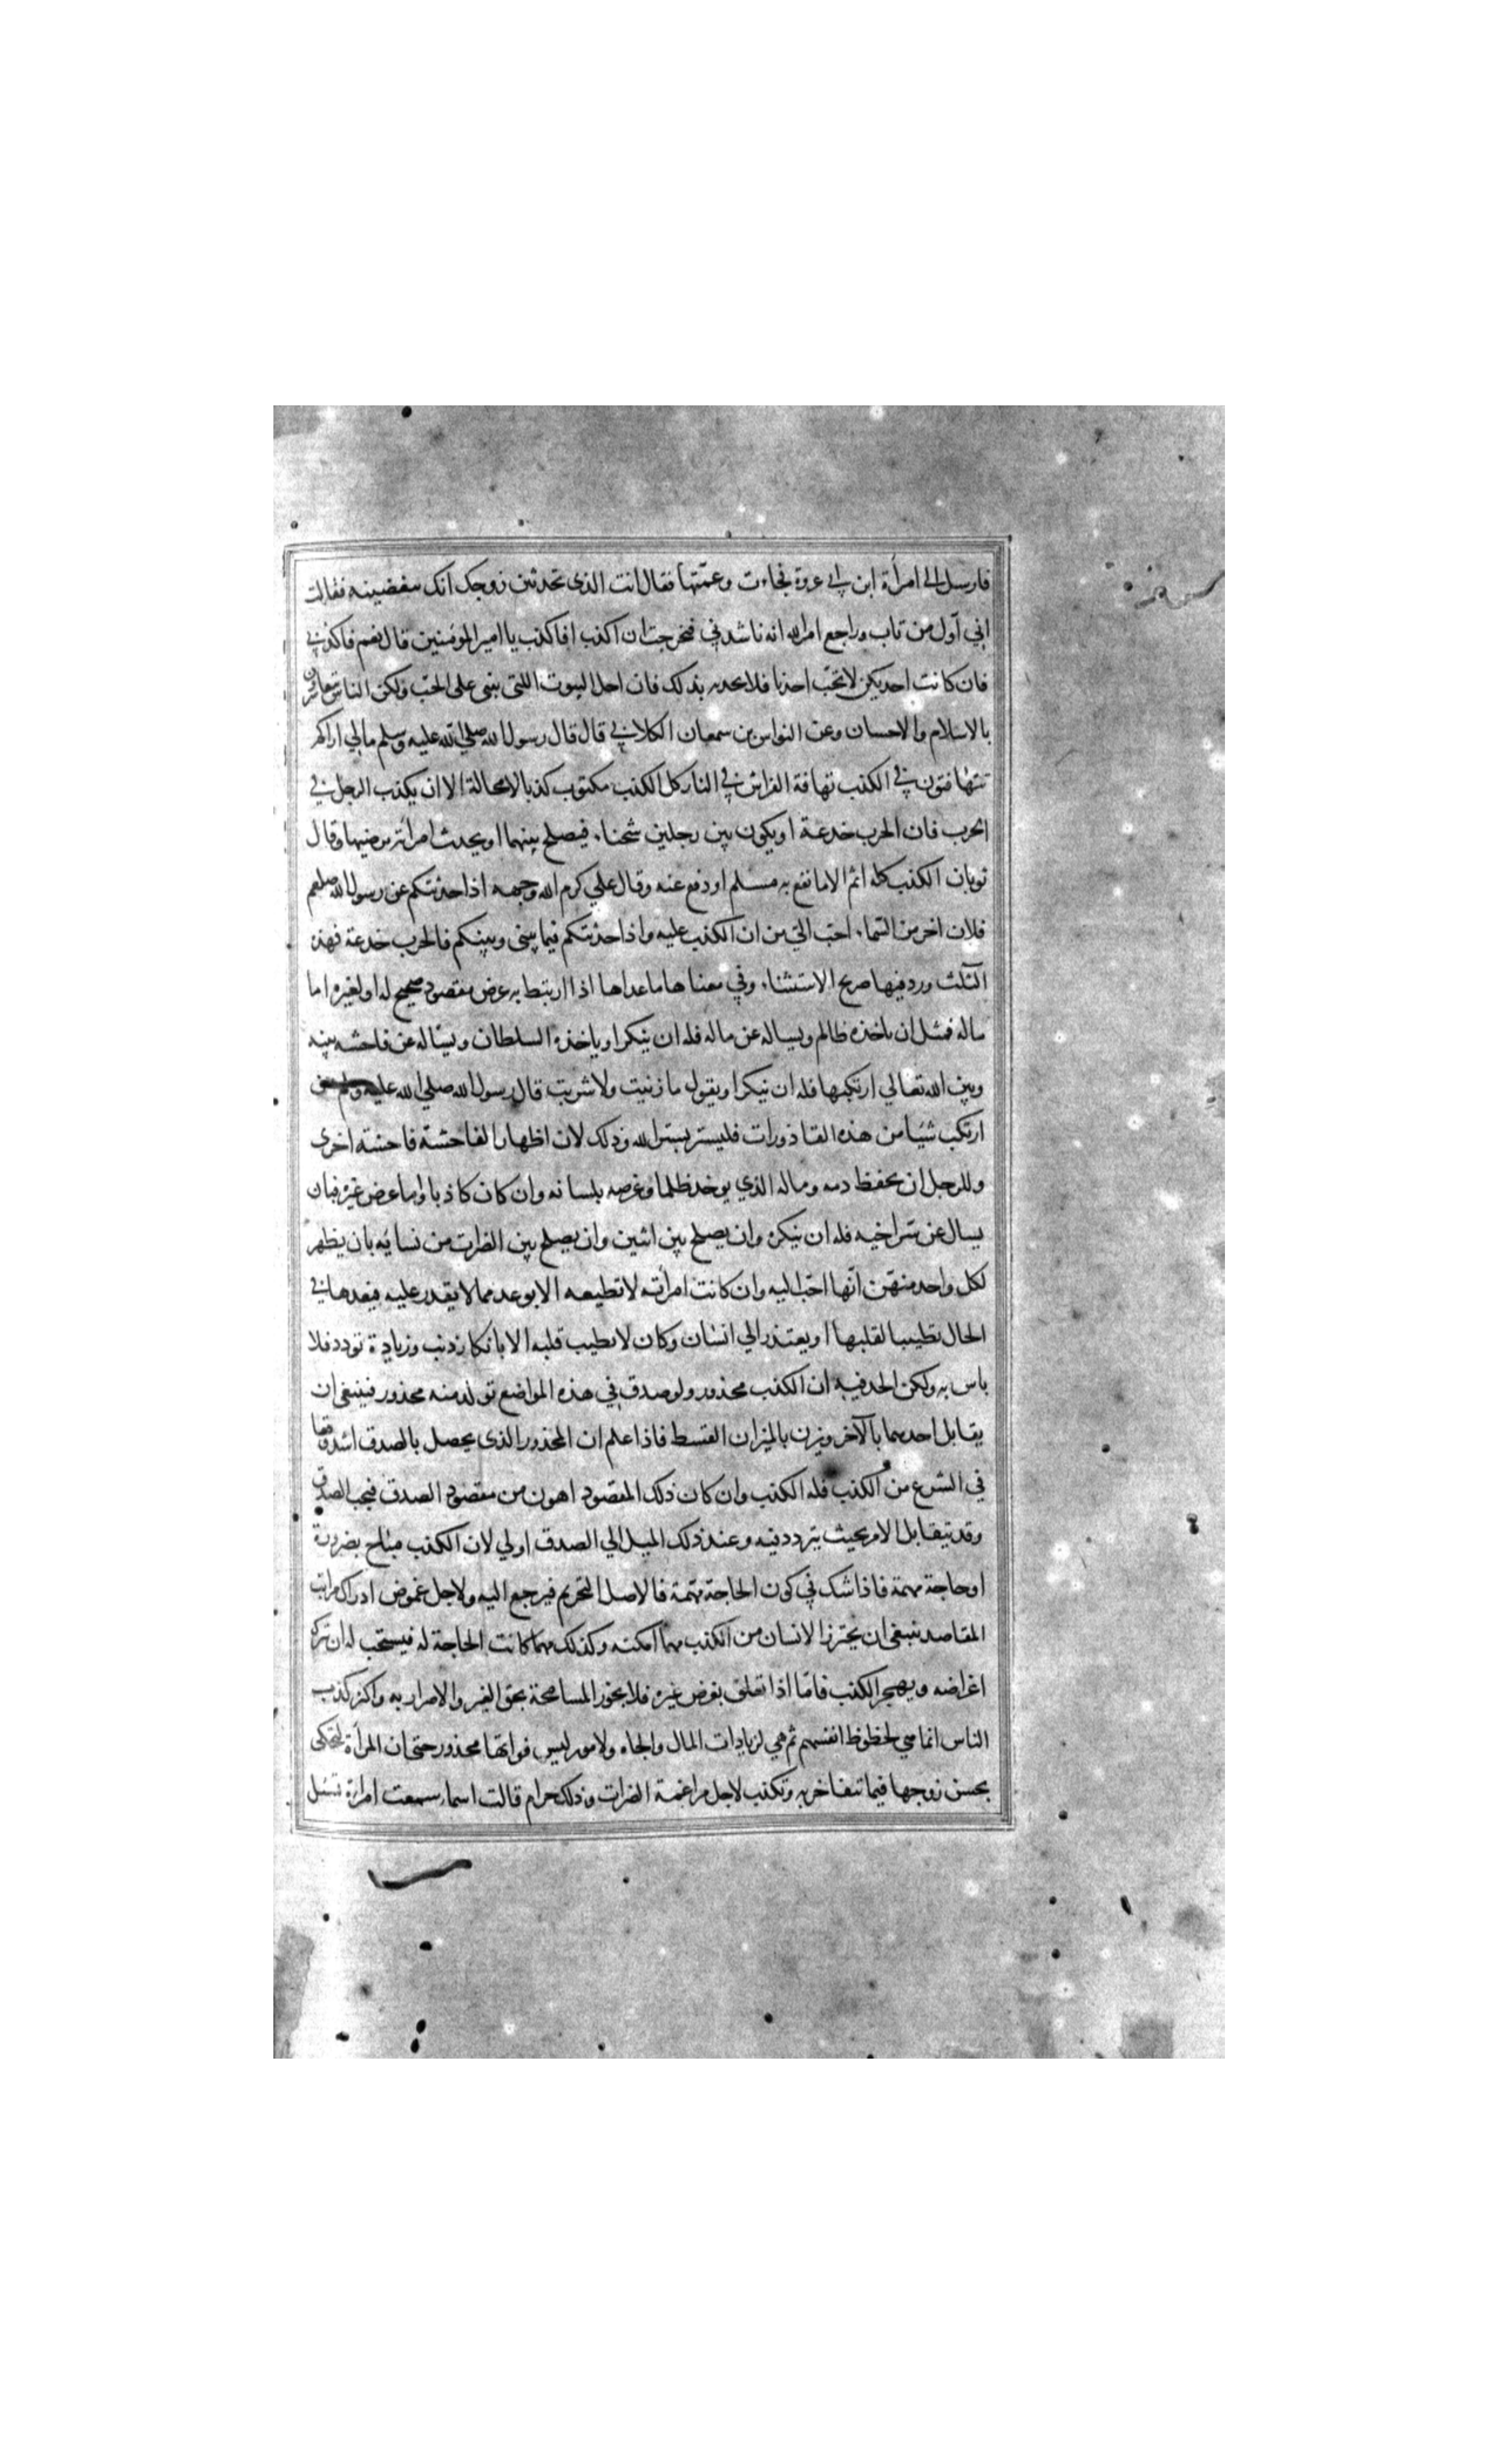 فارسل الى امرأة ابن ابي عروة فجاءت وعمتها فقال انت الذى تحدثين زوجك انك تبغضينه فقالت
اني اول من تاب وراجع امر الله انه ناشدني فتحرجت ان اكذب افاكذب يا امير المومنين قال نعم فاكذبي
فان كانت احديكن لا تحب احدنا فلا تحدثه بذلك فان اقل البيوت اللتى بنى على الحب ولكن الناس يتعاشرون
بالاسلام والاحسان وعن النواس بن سمعان الكلابي قال قال رسول الله صلى الله عليه وسلم مالي اراكم
تتهافتون في الكذب تهافة الفراش في النار كل الكذب مكتوب كذبا لامحالة الا ان يكذب الرجل في
الحرب فان الحرب خدعة او يكون بين رجلين شحناء فيصلح بينهما او يحدث امرأته يرضيها وقال
ثوبان الكذب كله اثم الا ما نفع به مسلم او دفع عنه وقال علي كرم الله وجهه اذا حدثتكم عن رسول الله صلعم
فلان اخر من السماء احب الي من ان اكذب عليه واذا حدثتكم فيما بيني وبينكم فالحرب خدعة فهذه
الثلث ورد فيها صريح الاستثناء وفي معناها ما عداها اذا ارتبط به غرض مقصود صحيح له او لغيره اما
ماله فمثل ان ياخذه ظالم ويساله عن ماله فله ان ينكر او ياخذه السلطان ويساله عن فاحشه بينه
وبين الله تعالي ارتكبها فله ان ينكر او يقول ما زنيت ولا شربت قال رسول الله صلي الله عليه وسلم من
ارتكب شيا من هذه القاذورات فليستر بستر الله وذلك لان اظهار الفاحشة فاحشة اخرى
وللرجل ان يحفظ دمه وماله الذي يوخذ ظلما وعرضه بلسانه وان كان كاذبا واما عرض غيره فبان
يسال عن سر اخيه فله ان ينكره وان يصلح بين اثنين وان يصلح بين الضرات من نسائه بان يظهر
لكل واحد منهن انها احب اليه وان كانت امرأته لا تطيعه الا بوعد مما لا يقدر عليه فيعدها في
الحال تطييبا لقلبها او يعتذر الي انسان وكان لا يطيب قلبه الا بانكار ذنب وزيادة تودد فلا
باس به ولكن الحد فيه ان الكذب محذور ولو صدق في هذه المواضع تولد منه محذور فينبغى ان
يقابل احدهما بالآخر ويزن بالميزان القسط فاذا علم ان المحذور الذى يحصل بالصدق اشد وقعا
في الشرع من الكذب فله الكذب وان كان ذلك المقصود اهون من مقصود الصدق فيجب الصدق
وقد يتقابل الامر بحيث يتردد فيه وعند ذلك الميل الي الصدق اولي لان الكذب مباح بضرورة
او حاجة مهمة فاذا شك في كون الحاجة مهمة فالاصل التحريم فيرجع اليه ولاجل غموض ادراك مراتب
المقاصد ينبغى ان يحترز الانسان من الكذب مهما امكنه وكذلك مهما كانت الحاجة له فيستحب له ان يترك
اغراضه ويهجر الكذب فاما اذا تعلق بغرض غيره فلا يجوز المسامحة بحق الغير والاضرار به واكثر كذب
الناس انما هي لحظوظ انفسهم ثم هي لزيادات المال والجاه ولامور ليس فواتها محذور حتى ان المرأة لتحكى
بحسن زوجها فيما تتفاخر به وتكذب لاجل مراغمة الضرات وذلك حرام قالت اسماء سمعت امرأة تسئل